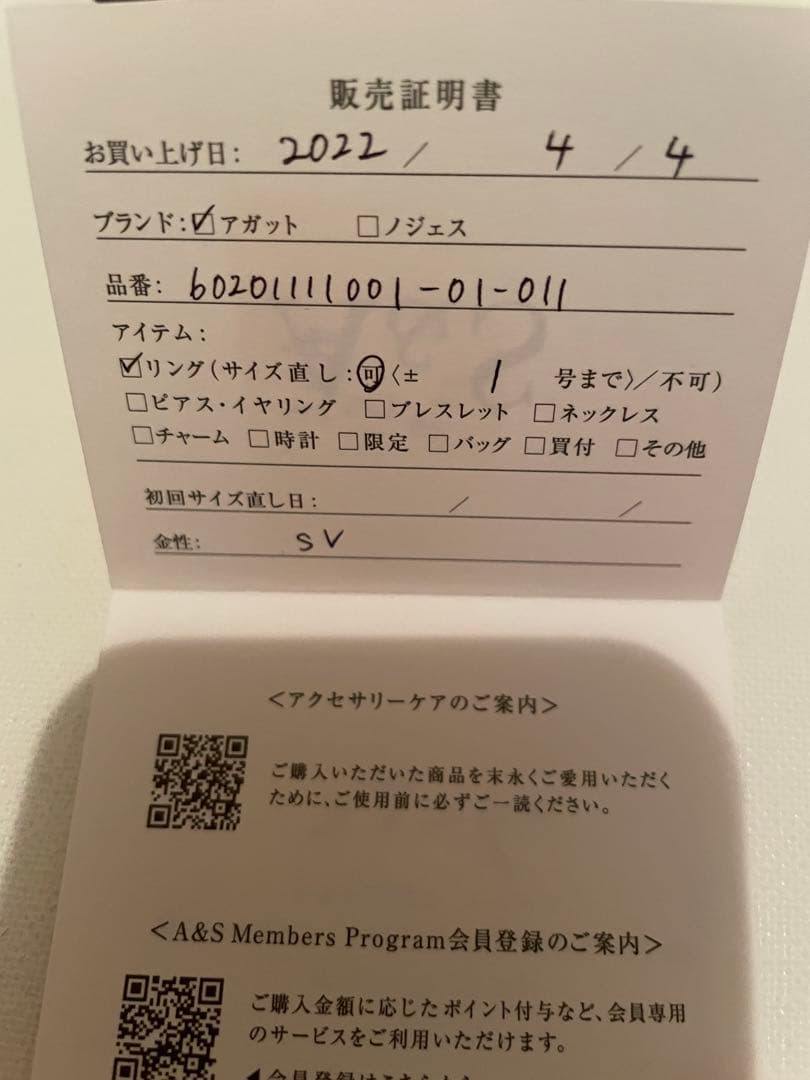 販売証明書
お買い上げ日: 2022 / 4 / 4
ブランド:☑アガット □ノジェス
品番: 60201111001-01-011
アイテム:
☑リング(サイズ直し:可〈± 1 号まで〉/不可)
□ピアス・イヤリング □ブレスレット □ネックレス
□チャーム □時計 □限定 □バッグ □買付 □その他
初回サイズ直し日: / /
金性: SV
<アクセサリーケアのご案内>
ご購入いただいた商品を末永くご愛用いただく
ために、ご使用前に必ずご一読ください。
<A&S Members Program会員登録のご案内>
ご購入金額に応じたポイント付与など、会員専用
のサービスをご利用いただけます。